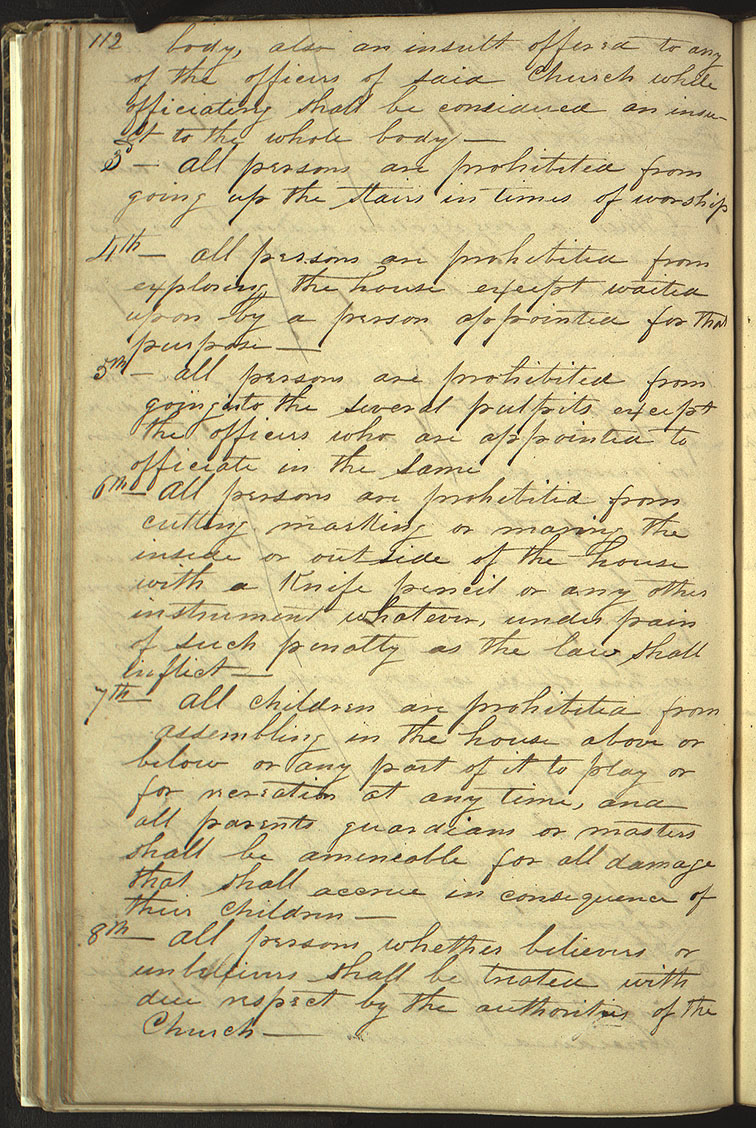 112 body, also an insult offered to any
of the officers of said Church while
officiating shall be considered an insu-
lt to the whole body —
3d — all persons are prohibited from
going up the stairs in times of worship
4th — all persons are prohibited from
exploring the house except waited
upon by a person appointed for that
purpose —
5th — all persons are prohibited from
going into the several pulpits except
the officers who are appointed to
officiate in the same
6th — all persons are prohibited from
cutting, marking or maring the
inside or outside of the house
with a Knife pencil or any other
instrument whatever, under pain
of such penalty as the law shall
inflict —
7th — all children are prohibited from
assembling in the house above or
below or any part of it to play or
for recreation at any time, and
all parents guardians or masters
shall be ameneable for all damage
that shall accrue in consequence of
their children —
8th — all persons whether believers or
unbelievers shall be treated with
due respect by the authorities of the
Church —